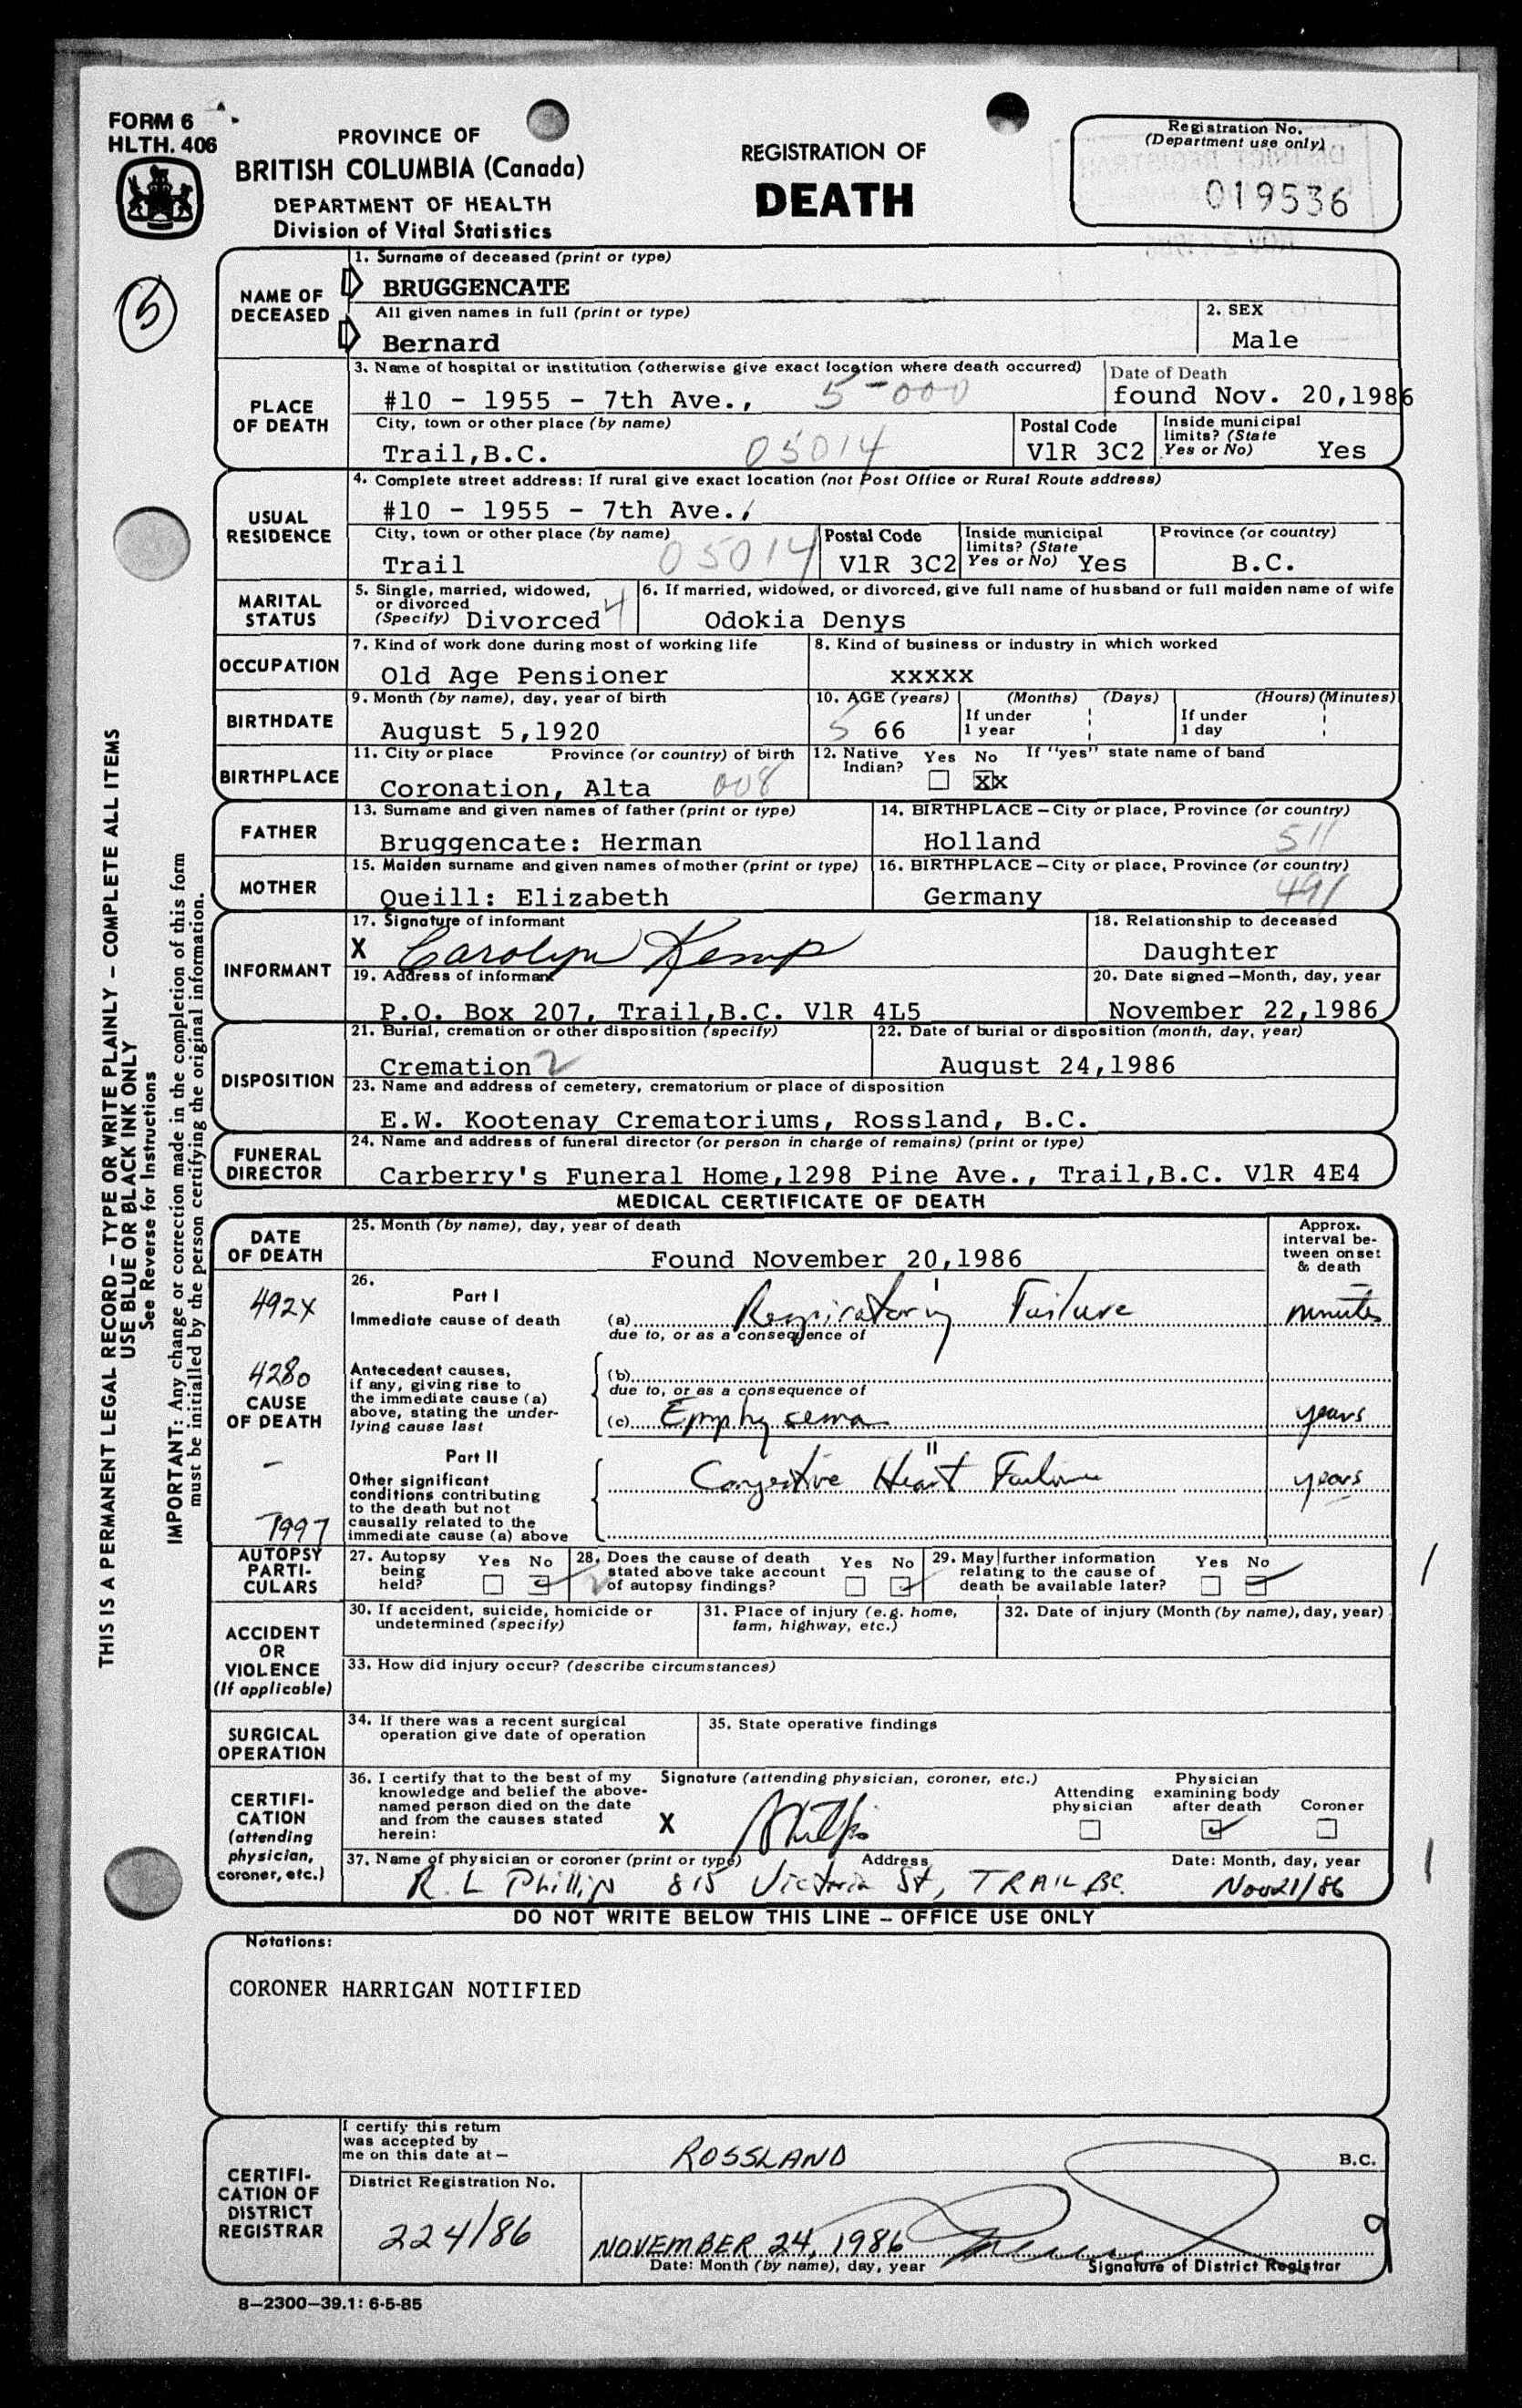 FORM 6
HLTH. 406
PROVINCE OF
BRITISH COLUMBIA (Canada)
DEPARTMENT OF HEALTH
Division of Vital Statistics
REGISTRATION OF
DEATH
Registration No.
(Department use only)
019536
5
THIS IS A PERMANENT LEGAL RECORD – TYPE OR WRITE PLAINLY – COMPLETE ALL ITEMS
USE BLUE OR BLACK INK ONLY
See Reverse for Instructions
IMPORTANT: Any change or correction made in the completion of this form
must be initialled by the person certifying the original information.
NAME OF DECEASED
1. Surname of deceased (print or type)
BRUGGENCATE
All given names in full (print or type)
Bernard
2. SEX
Male
PLACE OF DEATH
3. Name of hospital or institution (otherwise give exact location where death occurred)
#10 - 1955 - 7th Ave., 5-000
Date of Death
found Nov. 20,1986
City, town or other place (by name)
Trail,B.C. 05014
Postal Code
V1R 3C2
Inside municipal limits? (State Yes or No) Yes
USUAL RESIDENCE
4. Complete street address: If rural give exact location (not Post Office or Rural Route address)
#10 - 1955 - 7th Ave.,
City, town or other place (by name)
Trail 05014
Postal Code
V1R 3C2
Inside municipal limits? (State Yes or No) Yes
Province (or country)
B.C.
MARITAL STATUS
5. Single, married, widowed, or divorced (Specify) Divorced 4
6. If married, widowed, or divorced, give full name of husband or full maiden name of wife
Odokia Denys
OCCUPATION
7. Kind of work done during most of working life
Old Age Pensioner
8. Kind of business or industry in which worked
xxxxx
BIRTHDATE
9. Month (by name), day, year of birth
August 5,1920
10. AGE (years)
5 66
(Months) (Days)
If under 1 year
(Hours) (Minutes)
If under 1 day
BIRTHPLACE
11. City or place Province (or country) of birth
Coronation, Alta 008
12. Native Indian? Yes No If "yes" state name of band
XX
FATHER
13. Surname and given names of father (print or type)
Bruggencate: Herman
14. BIRTHPLACE – City or place, Province (or country)
Holland 511
MOTHER
15. Maiden surname and given names of mother (print or type)
Queill: Elizabeth
16. BIRTHPLACE – City or place, Province (or country)
Germany 491
INFORMANT
17. Signature of informant
X Carolyn Kemp
18. Relationship to deceased
Daughter
19. Address of informant
P.O. Box 207, Trail,B.C. V1R 4L5
20. Date signed – Month, day, year
November 22,1986
DISPOSITION
21. Burial, cremation or other disposition (specify)
Cremation 2
22. Date of burial or disposition (month, day, year)
August 24,1986
23. Name and address of cemetery, crematorium or place of disposition
E.W. Kootenay Crematoriums, Rossland, B.C.
FUNERAL DIRECTOR
24. Name and address of funeral director (or person in charge of remains) (print or type)
Carberry's Funeral Home,1298 Pine Ave., Trail,B.C. V1R 4E4
MEDICAL CERTIFICATE OF DEATH
DATE OF DEATH
25. Month (by name), day, year of death
Found November 20,1986
Approx. interval between onset & death
492X
4280
CAUSE OF DEATH
–
7997
26.
Part I
Immediate cause of death
(a) Respiratory Failure minutes
due to, or as a consequence of
Antecedent causes, if any, giving rise to the immediate cause (a) above, stating the underlying cause last
(b)
due to, or as a consequence of
(c) Emphysema years
Part II
Other significant conditions contributing to the death but not causally related to the immediate cause (a) above
Congestive Heart Failure years
AUTOPSY PARTICULARS
27. Autopsy being held? Yes No
28. Does the cause of death stated above take account of autopsy findings? Yes No
29. May further information relating to the cause of death be available later? Yes No
ACCIDENT OR VIOLENCE (If applicable)
30. If accident, suicide, homicide or undetermined (specify)
31. Place of injury (e.g. home, farm, highway, etc.)
32. Date of injury (Month (by name), day, year)
33. How did injury occur? (describe circumstances)
SURGICAL OPERATION
34. If there was a recent surgical operation give date of operation
35. State operative findings
CERTIFICATION (attending physician, coroner, etc.)
36. I certify that to the best of my knowledge and belief the above-named person died on the date and from the causes stated herein:
Signature (attending physician, coroner, etc.)
X
Attending physician
Physician examining body after death
Coroner
37. Name of physician or coroner (print or type) Address Date: Month, day, year
R. L Phillips 815 Victoria St, TRAIL BC. Nov 21/86
DO NOT WRITE BELOW THIS LINE – OFFICE USE ONLY
Notations:
CORONER HARRIGAN NOTIFIED
CERTIFICATION OF DISTRICT REGISTRAR
I certify this return was accepted by me on this date at –
ROSSLAND B.C.
District Registration No.
224/86
NOVEMBER 24, 1986
Date: Month (by name), day, year
Signature of District Registrar
8–2300–39.1: 6-5-85